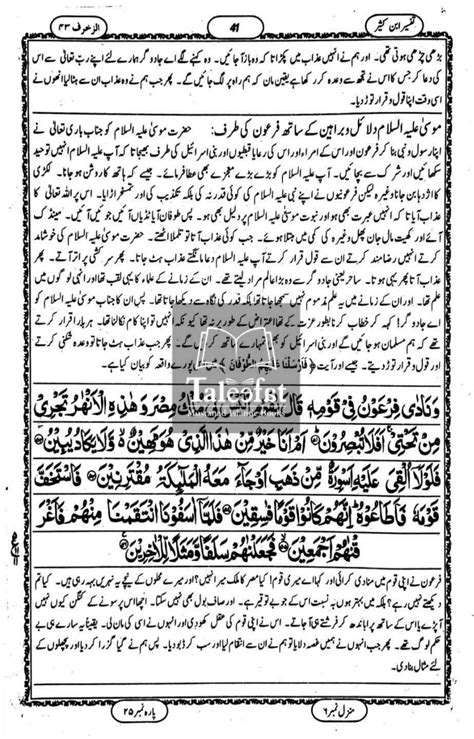 الزخرف ۴۳
41
تفسیر ابن کثیر
بڑھی چڑھی ہوتی تھی۔ اور ہم نے انہیں عذاب میں پکڑا تا کہ وہ باز آ جائیں۔ وہ کہنے لگے اے جادوگر ہمارے لئے اپنے رب تعالی سے اس
کی دعا کر جس کا اس نے تجھ سے وعدہ کر رکھا ہے یقین مان کہ ہم راہ پر لگ جائیں گے۔ پھر جب ہم نے وہ عذاب ان سے ہٹا لیا انھوں نے
اسی وقت اپنا قول و قرار توڑ دیا۔
موسیٰ علیہ السلام دلائل و براہین کے ساتھ فرعون کی طرف: حضرت موسیٰ علیہ السلام کو جناب باری تعالی نے
اپنا رسول و نبی بنا کر فرعون اور اس کے امراء اور اس کی رعایا قبطیوں اور بنی اسرائیل کی طرف بھیجا تا کہ آپ علیہ السلام انہیں توحید
سکھائیں اور شرک سے بچائیں۔ آپ علیہ السلام کو بڑے بڑے معجزے بھی عطا فرمائے۔ جیسے کہ ہاتھ کا روشن ہو جانا۔ لکڑی
کا اژدہا بن جانا وغیرہ لیکن فرعونیوں نے اپنے نبی علیہ السلام کی کوئی قدر نہ کی بلکہ تکذیب کی اور تمسخر اڑایا۔ اس پر اللہ تعالی کا
عذاب آیا تا کہ انہیں عبرت بھی ہو اور نبوت موسیٰ علیہ السلام پر دلیل بھی ہو۔ پس طوفان آیا ٹڈیاں آئیں جوئیں آئیں۔ مینڈک
آئے اور کھیت مال جان پھل وغیرہ کی کمی میں مبتلا ہوئے۔ جب کوئی عذاب آتا تو تلملا اٹھتے۔ حضرت موسیٰ علیہ السلام کی خوشامد
کرتے انہیں رضامند کرتے ان سے قول قرار کرتے آپ علیہ السلام دعا مانگتے عذاب ہٹ جاتا۔ پھر سرکشی پر اتر آتے۔ پھر
عذاب آتا پھر یہی ہوتا۔ ساحر یعنی جادوگر سے وہ بڑا عالم مراد لیتے تھے۔ ان کے زمانے کے علماء کا یہی لقب تھا اور انہی لوگوں میں
علم تھا۔ اور ان کے زمانے میں یہ علم مذموم نہیں سمجھا جاتا تھا بلکہ قدر کی نگاہ سے دیکھا جاتا تھا۔ پس ان کا جناب موسیٰ علیہ السلام کو
اے جادوگر! کہہ کر خطاب کرنا بطور عزت کے تھا اعتراض کے طور پر نہ تھا کیونکہ انہیں تو اپنا کام نکالنا تھا۔ ہر بار اقرار کرتے
تھے کہ مسلمان ہو جائیں گے اور بنی اسرائیل کو بھی تمہارے ساتھ کر دیں گے۔ پھر جب عذاب ہٹ جاتا تو وعدہ شکنی کرتے
اور قول و قرار توڑ دیتے۔ جیسے اور آیت ﴿فَاَرْسَلْنَا عَلَیْهِمُ الطُّوْفَانَ﴾ میں پورے واقعہ کو بیان کیا ہے۔
Taleefat
وَنَادٰى فِرْعَوْنُ فِیْ قَوْمِهٖ قَالَ یٰقَوْمِ اَلَیْسَ لِیْ مُلْكُ مِصْرَ وَهٰذِهِ الْاَنْهٰرُ تَجْرِیْ
مِنْ تَحْتِیْ ۚ اَفَلَا تُبْصِرُوْنَ ؕ اَمْ اَنَا خَیْرٌ مِّنْ هٰذَا الَّذِیْ هُوَ مَهِیْنٌ ۙ وَّلَا یَكَادُ یُبِیْنُ
فَلَوْلَاۤ اُلْقِیَ عَلَیْهِ اَسْوِرَةٌ مِّنْ ذَهَبٍ اَوْ جَآءَ مَعَهُ الْمَلٰٓىِٕكَةُ مُقْتَرِنِیْنَ فَاسْتَخَفَّ
قَوْمَهٗ فَاَطَاعُوْهُ ؕ اِنَّهُمْ كَانُوْا قَوْمًا فٰسِقِیْنَ فَلَمَّاۤ اٰسَفُوْنَا انْتَقَمْنَا مِنْهُمْ فَاَغْرَ
قْنٰهُمْ اَجْمَعِیْنَ ۙ فَجَعَلْنٰهُمْ سَلَفًا وَّمَثَلًا لِّلْاٰخِرِیْنَ
فرعون نے اپنی قوم میں منادی کرائی اور کہا اے میری قوم! کیا مصر کا ملک میرا نہیں؟ اور میرے محلوں کے نیچے یہ نہریں بہہ رہی ہیں۔ کیا تم
دیکھتے نہیں رہے؟ بلکہ میں بہتر ہوں بہ نسبت اس کے جو بے توقیر ہے۔ اور صاف بول بھی نہیں سکتا۔ اچھا اس پر سونے کے کنگن کیوں نہیں
آ پڑے یا اس کے ساتھ پر ابا ندھ کر فرشتے ہی آ جاتے۔ اس نے اپنی قوم کی عقل کھو دی اور انہوں نے اسی کی مان لی۔ یقیناً یہ سارے ہی بے
حکم لوگ تھے۔ پھر جب انہوں نے ہمیں غصہ دلایا تو ہم نے ان سے انتقام لیا اور سب کو ڈبو دیا۔ پس ہم نے گیا گزرا کر دیا اور پچھلوں کے
لئے مثال بنا دی۔
پارہ نمبر ۲۵
منزل نمبر ۶